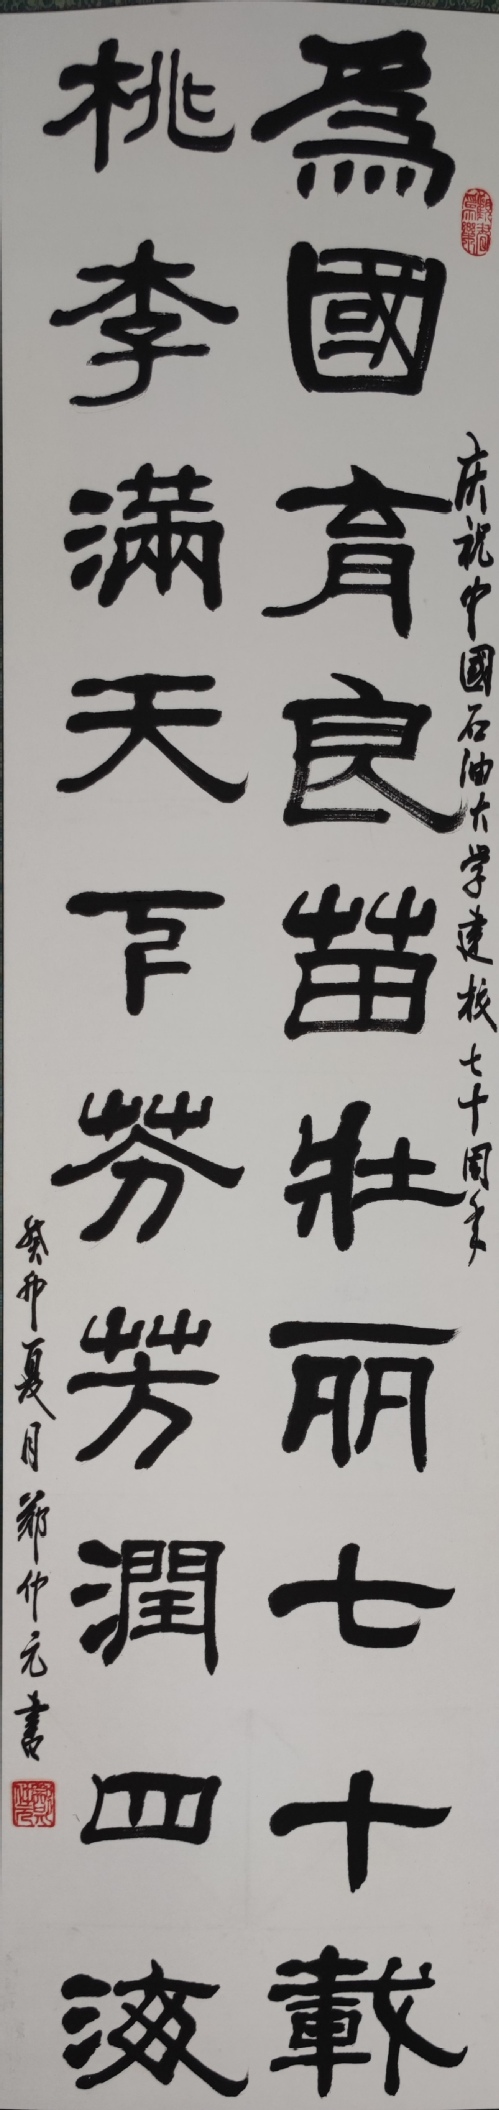 庆祝中國石油大学建校七十周年
為國育良苗壮丽七十載
桃李满天下芬芳潤四海
癸卯夏月鄭仲元書